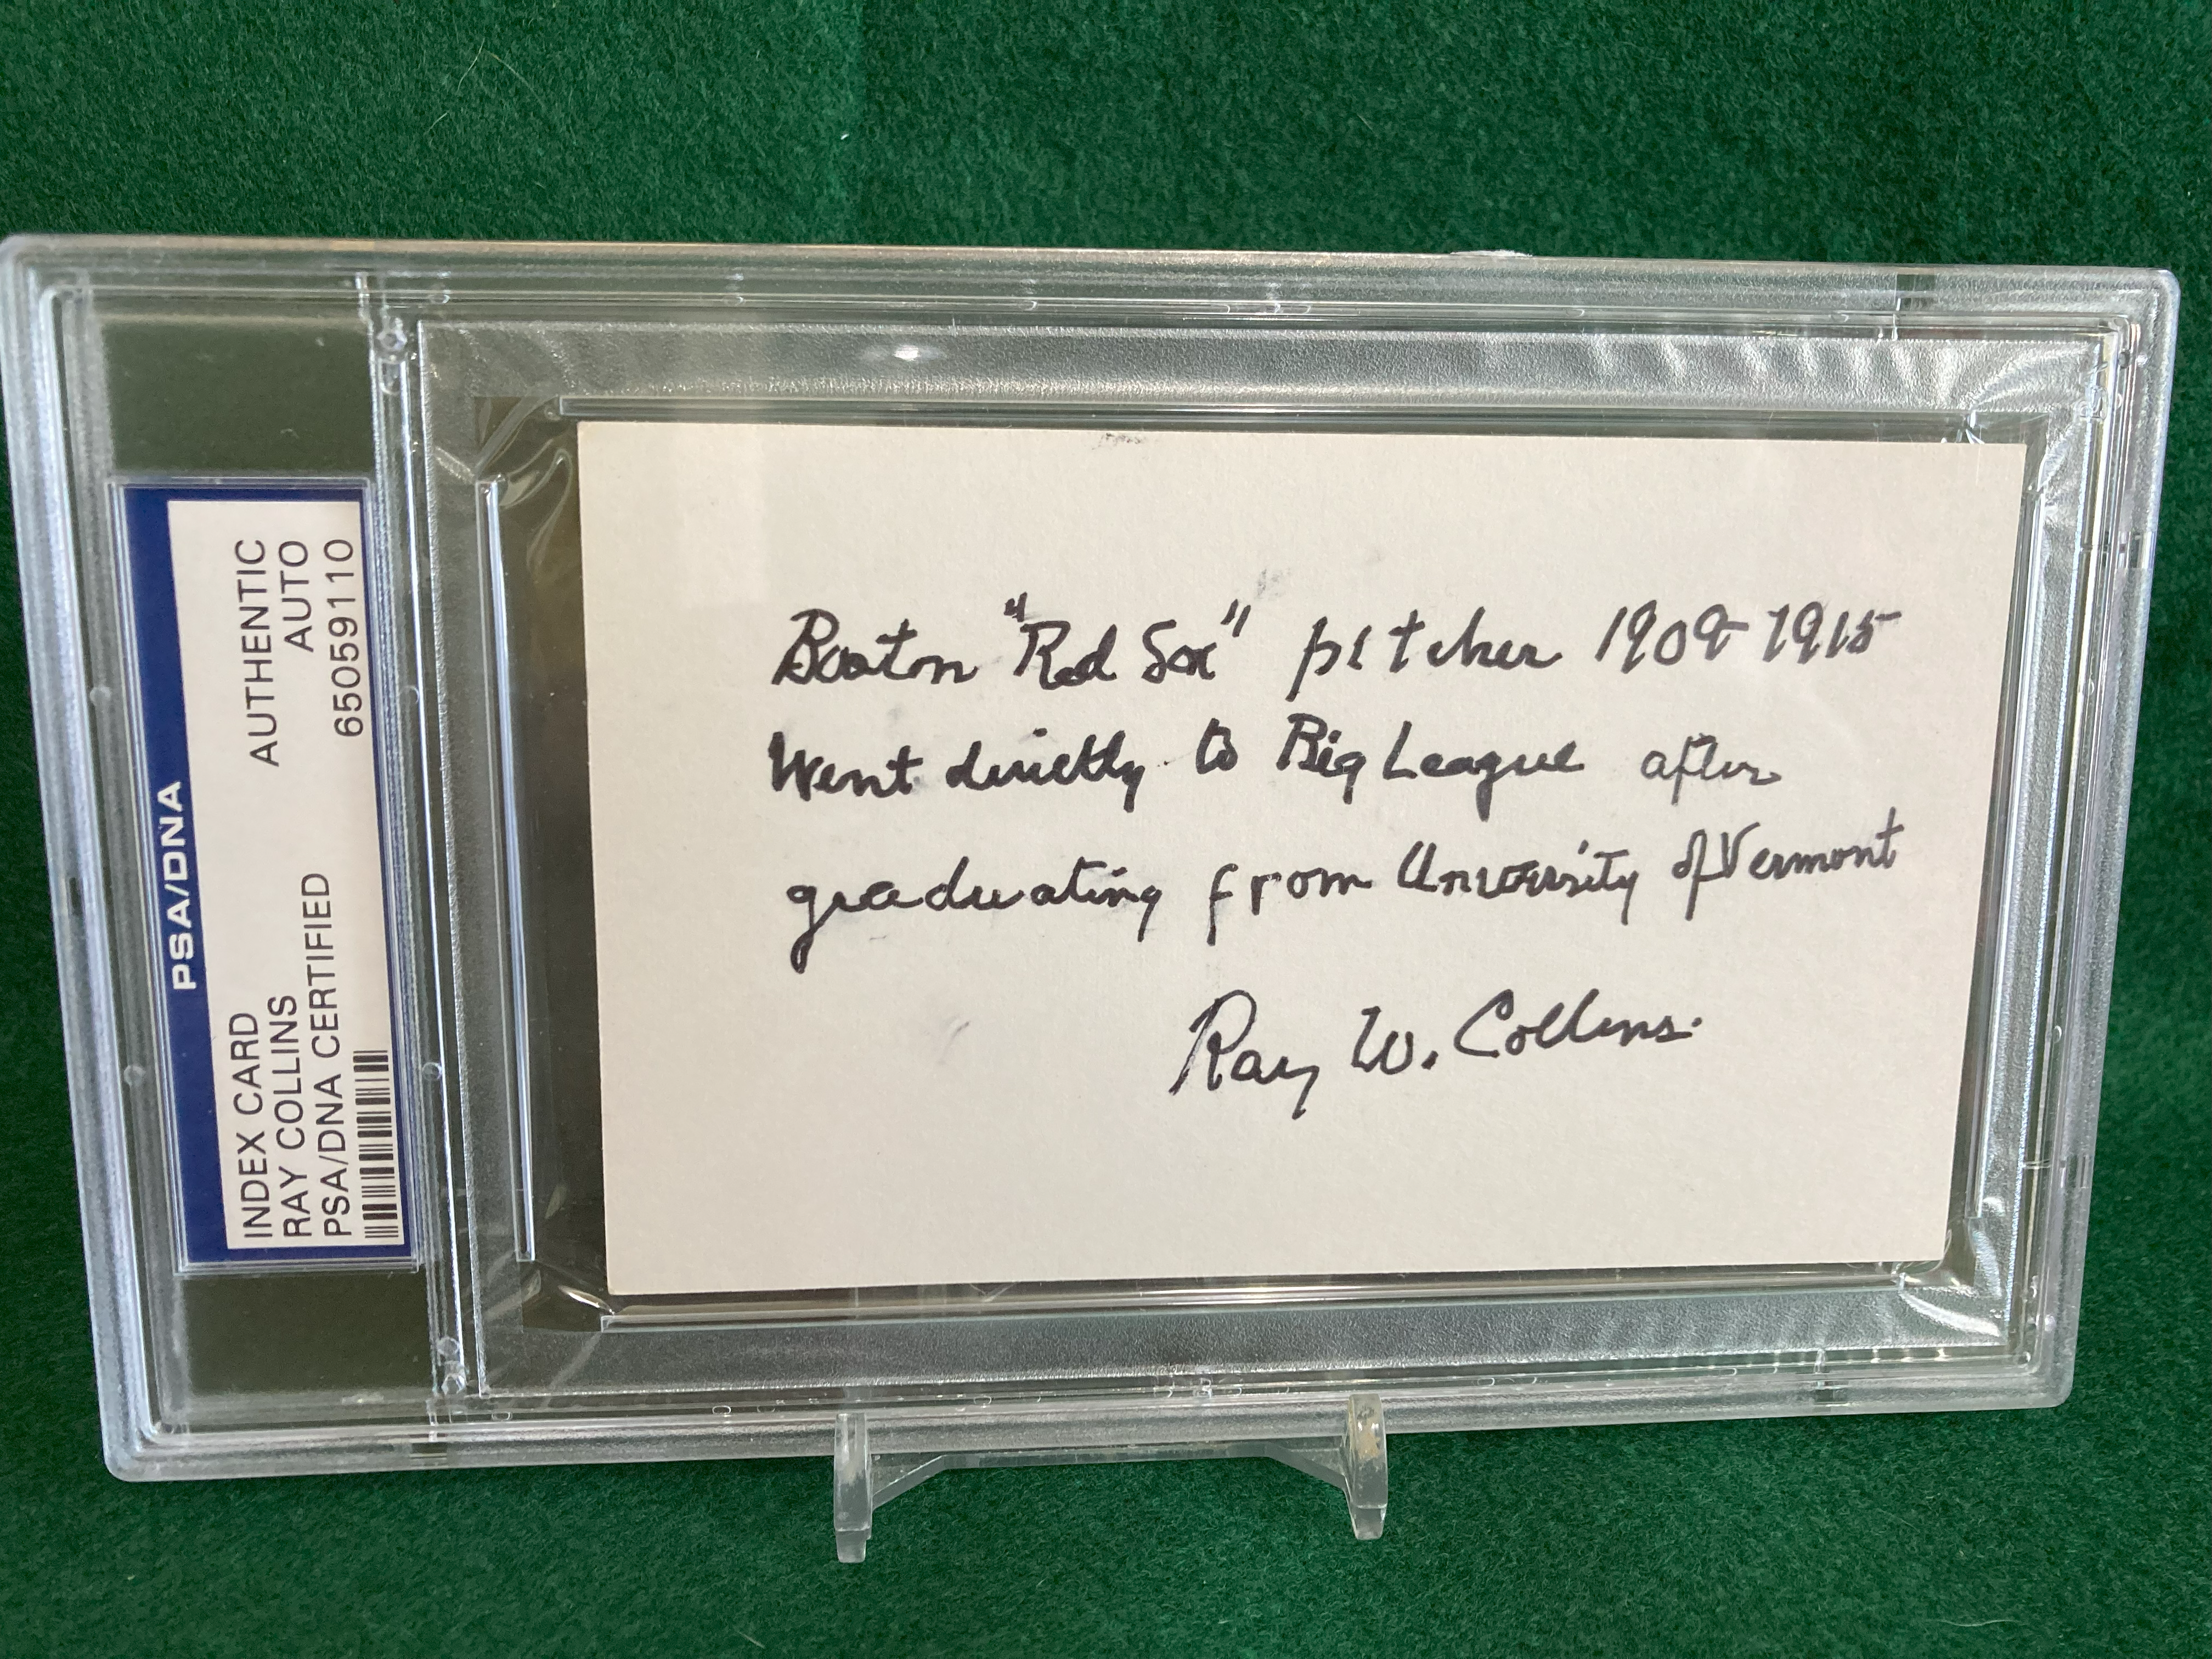 PSA/DNA
INDEX CARD
RAY COLLINS
PSA/DNA CERTIFIED
AUTHENTIC
AUTO
65059110
Boston "Red Sox" pitcher 1909-1915
Went directly to Big League after
graduating from University of Vermont
Ray W. Collins.